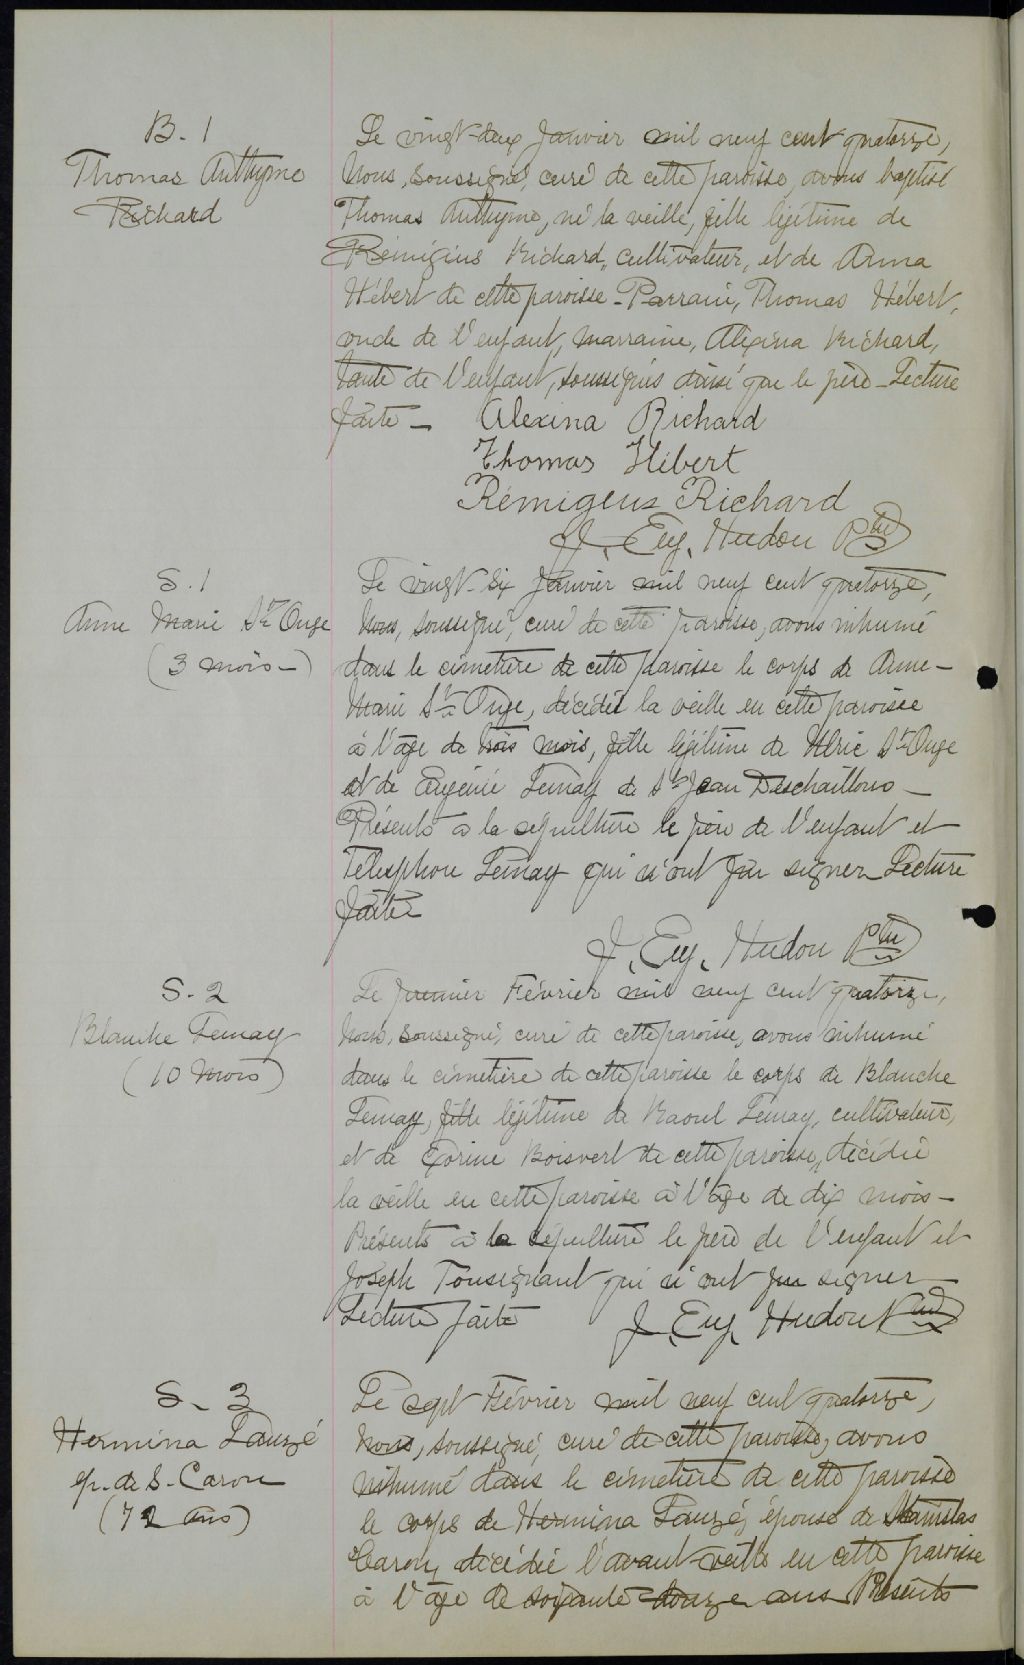 B. 1
Thomas Anthyme
Richard
Le vingt-deux Janvier mil neuf cent quatorze,
Nous, soussigné, curé de cette paroisse, avons baptisé
Thomas Anthyme, né la veille, fille légitime de
Rémigius Richard, cultivateur, et de Anna
Hébert de cette paroisse - Parrain, Thomas Hébert,
oncle de l'enfant, marraine, Alexina Richard,
tante de l'enfant, soussignés ainsi que le père - Lecture
faite - Alexina Richard
Thomas Hébert
Rémigeus Richard
J. Eug. Hudon Ptre
S. 1
Anne Marie St Onge
(3 mois -)
Le vingt-six Janvier mil neuf cent quatorze,
Nous, soussigné, curé de cette paroisse, avons inhumé
dans le cimetière de cette paroisse le corps de Anne-
Marie St Onge, décédée la veille en cette paroisse
à l'âge de trois mois, fille légitime de Ulric St Onge
et de Eugénie Lemay de St Jean Deschaillons -
Présents à la sépulture le père de l'enfant et
Télesphore Lemay qui n'ont pu signer Lecture
faite
J. Eug. Hudon Ptre
S. 2
Blanche Lemay
(10 mois)
Le premier Février mil neuf cent quatorze,
Nous, soussigné, curé de cette paroisse, avons inhumé
dans le cimetière de cette paroisse le corps de Blanche
Lemay, fille légitime de Raoul Lemay, cultivateur,
et de Boisvert de cette paroisse, décédée
la veille en cette paroisse à l'âge de dix mois -
Présents à la sépulture le père de l'enfant et
Joseph Tousignant qui n'ont pu signer -
Lecture faite J. Eug. Hudon Ptre
S - 3
Hermina Lauzé
ép. de S. Caron
(72 ans)
Le sept Février mil neuf cent quatorze,
Nous, soussigné, curé de cette paroisse, avons
inhumé dans le cimetière de cette paroisse
le corps de Hermina Lauzé, épouse de Stanislas
Caron, décédée l'avant-veille en cette paroisse
à l'âge de soixante douze ans Présents